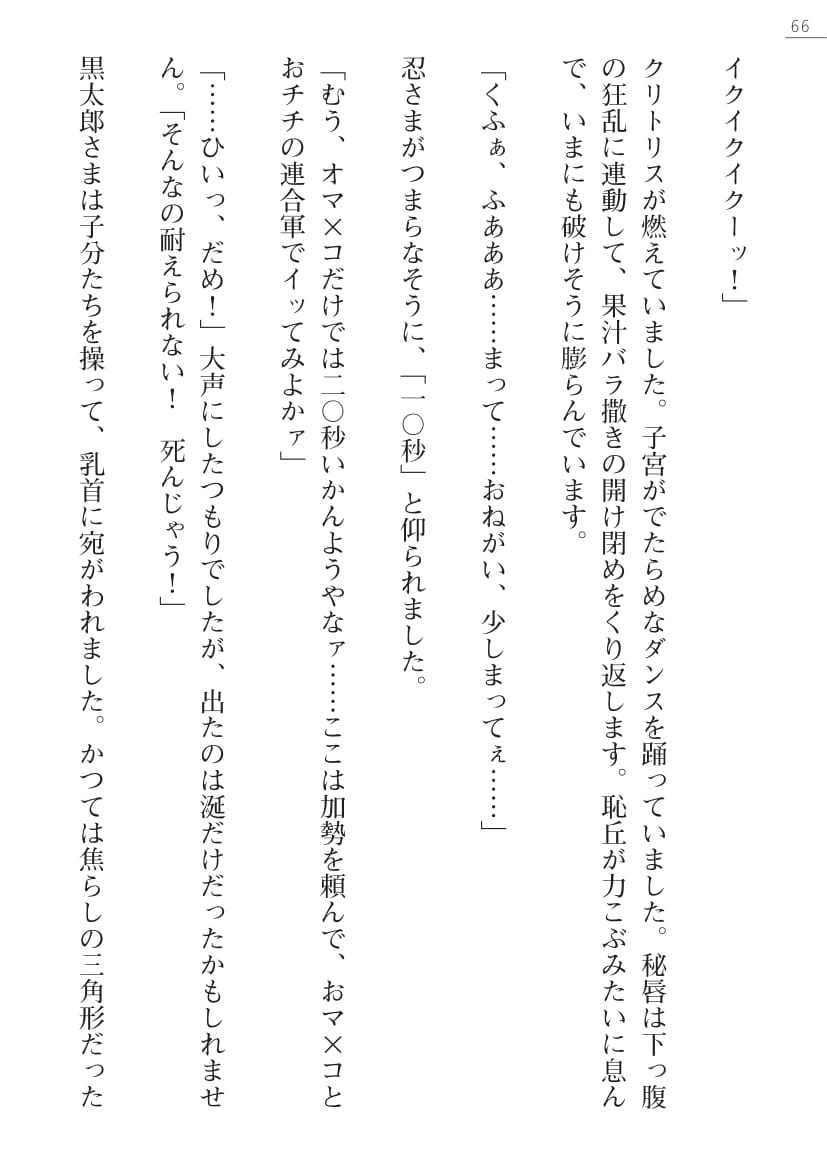 66
イクイクイクーッ！」
クリトリスが燃えていました。子宮がでたらめなダンスを踊っていました。秘唇は下っ腹
の狂乱に連動して、果汁バラ撒きの開け閉めをくり返します。恥丘が力こぶみたいに息ん
で、いまにも破けそうに膨らんでいます。
「くふぁ、ふあああ……まって……おねがい、少しまってぇ……」
忍さまがつまらなそうに、「一〇秒」と仰られました。
「むう、オマ×コだけでは二〇秒いかんようやなァ……ここは加勢を頼んで、おマ×コと
おチチの連合軍でイッてみよかァ」
「……ひいっ、だめ！」大声にしたつもりでしたが、出たのは涎だけだったかもしれませ
ん。「そんなの耐えられない！　死んじゃう！」
黒太郎さまは子分たちを操って、乳首に宛がわれました。かつては焦らしの三角形だった